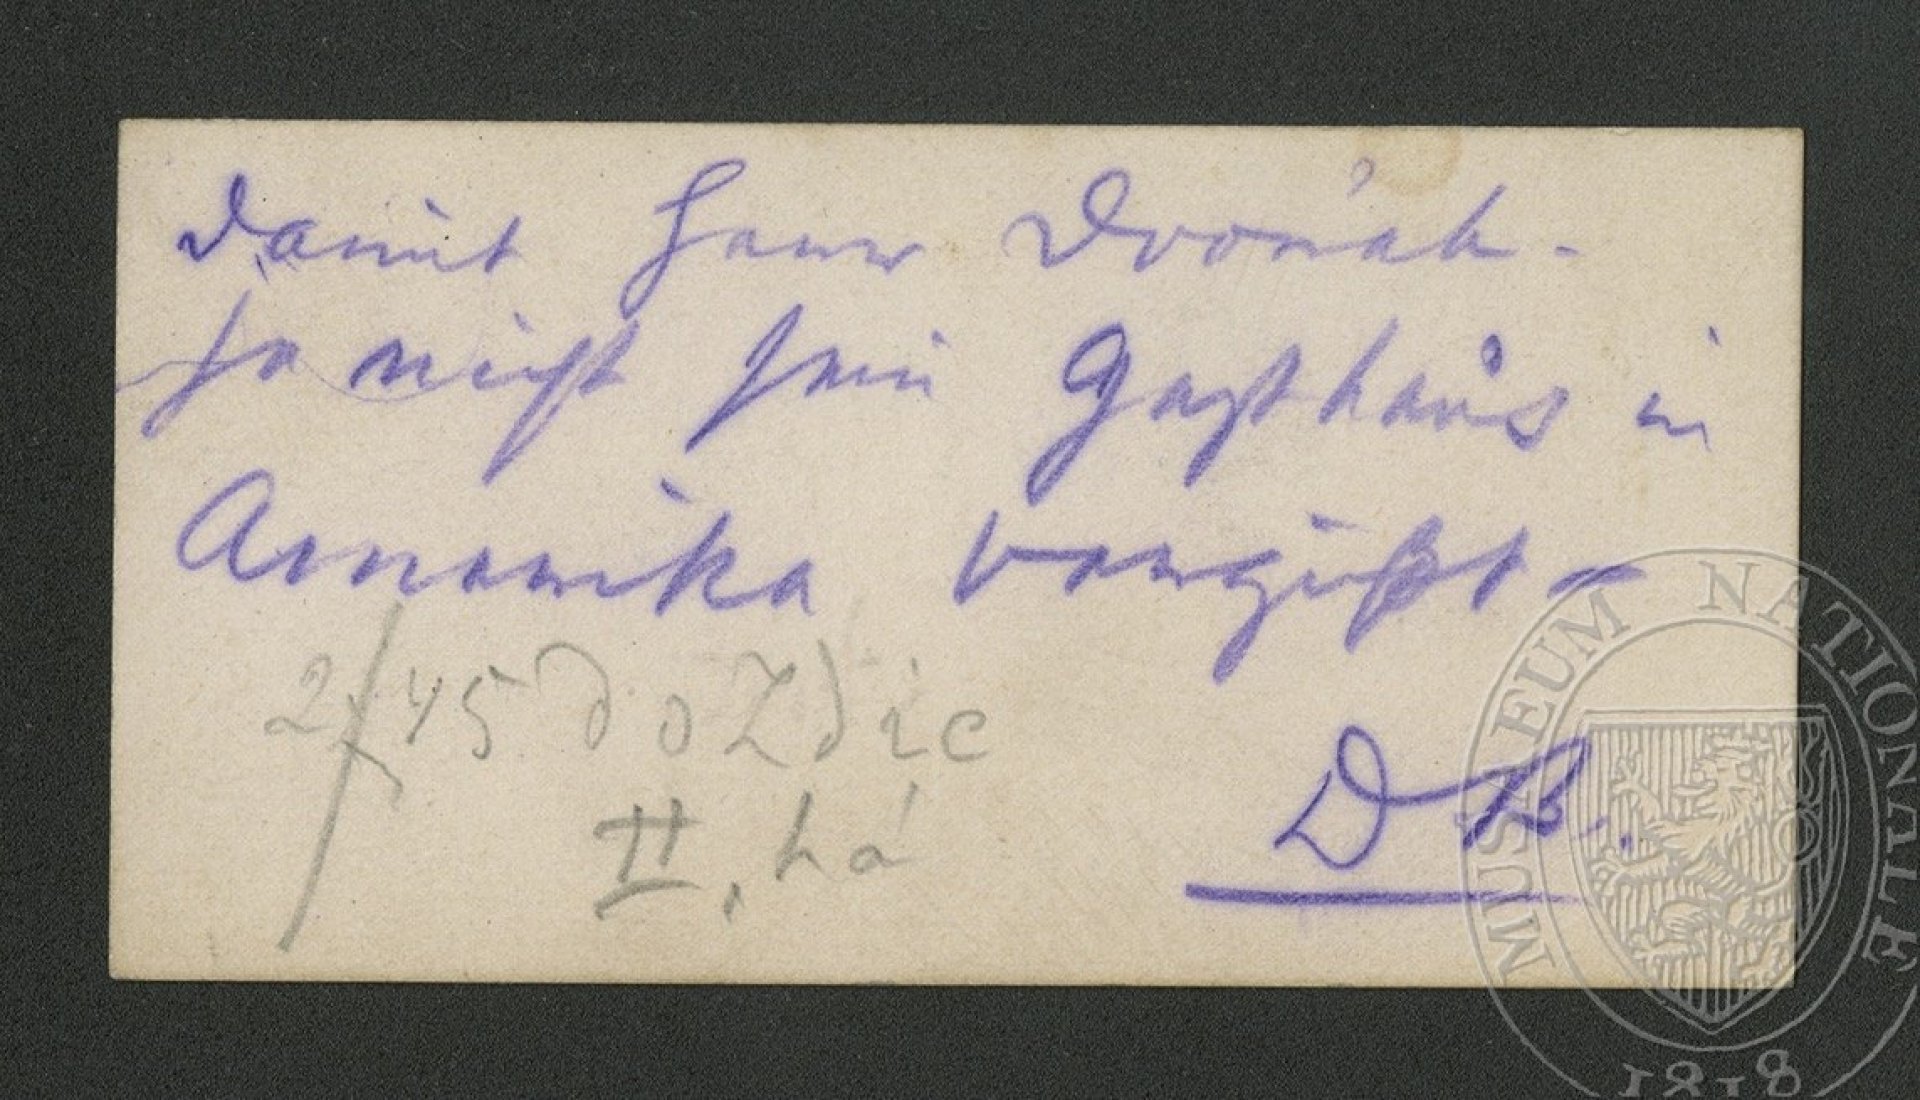 Damit Herr Dvořák -
ja nicht sein Gasthaus in
Amerika vergißt -
D B.
2/45 do Zdic
II. há
MUSEUM NATIONALE
1818